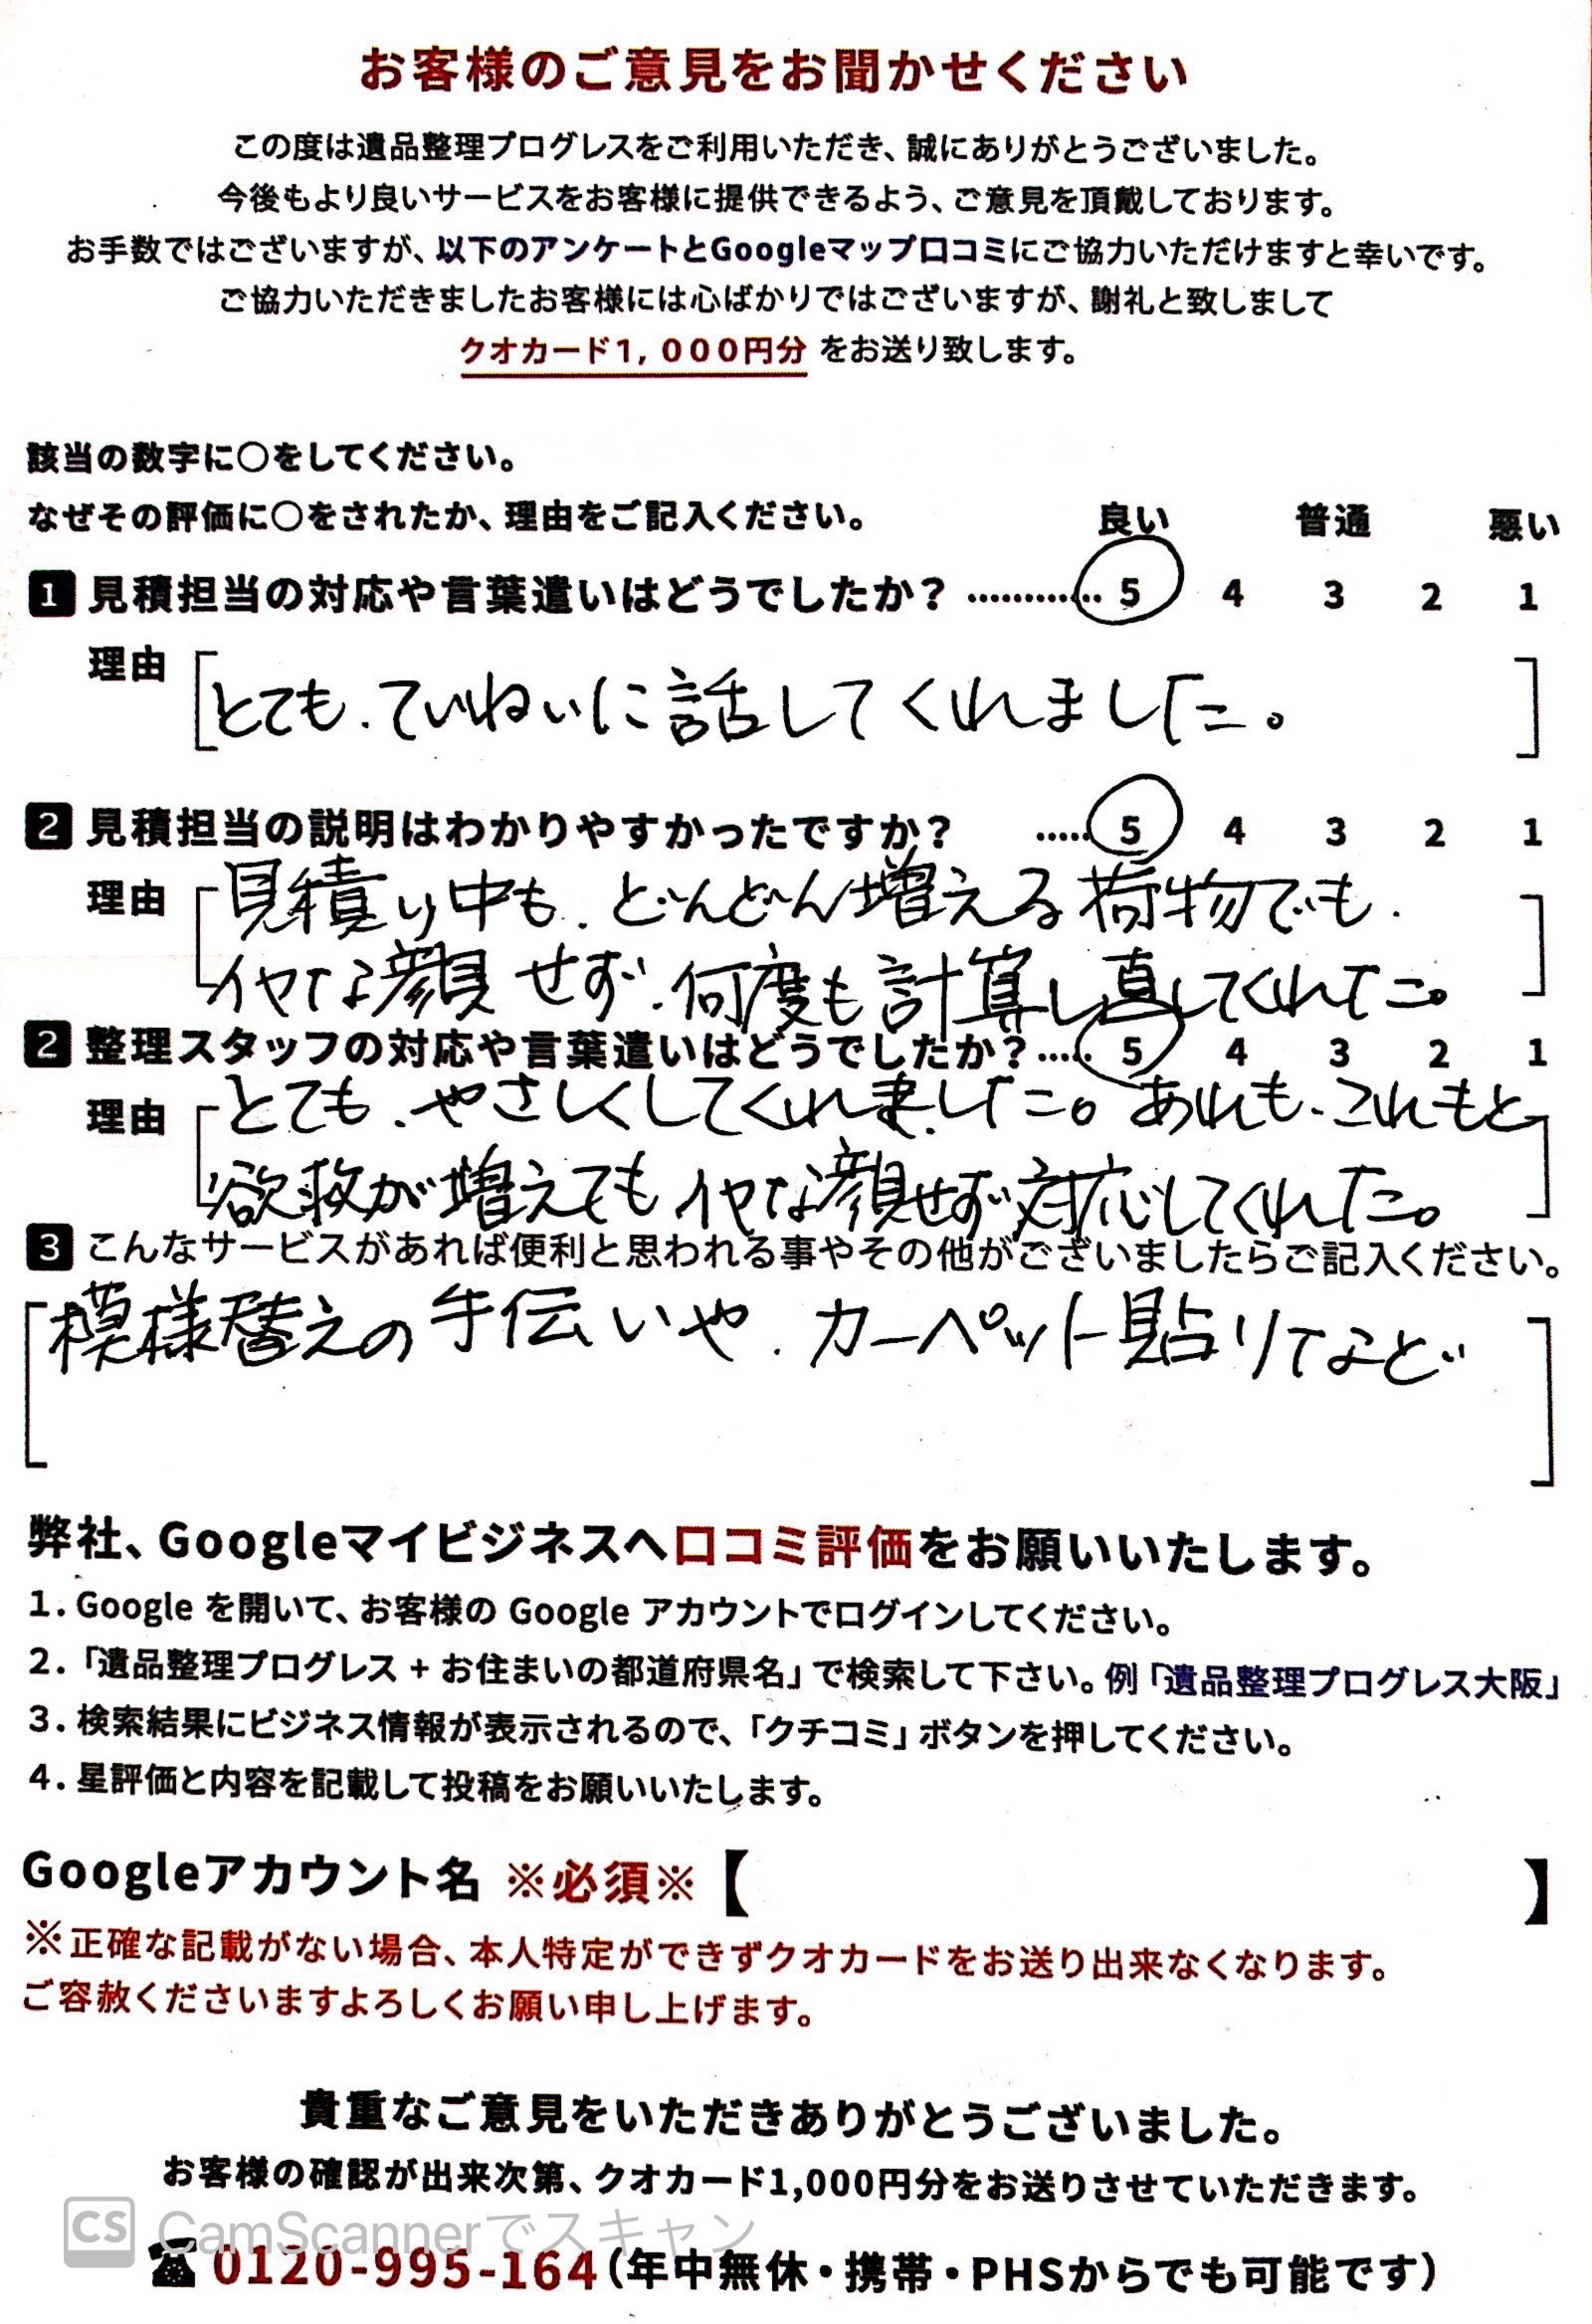 お客様のご意見をお聞かせください
この度は遺品整理プログレスをご利用いただき、誠にありがとうございました。
今後もより良いサービスをお客様に提供できるよう、ご意見を頂戴しております。
お手数ではございますが、以下のアンケートとGoogleマップ口コミにご協力いただけますと幸いです。
ご協力いただきましたお客様には心ばかりではございますが、謝礼と致しまして
クオカード1,000円分 をお送り致します。
該当の数字に〇をしてください。
なぜその評価に〇をされたか、理由をご記入ください。 良い 普通 悪い
1 見積担当の対応や言葉遣いはどうでしたか? ............ 5 4 3 2 1
理由 [とても、ていねいに話してくれました。]
2 見積担当の説明はわかりやすかったですか? ..... 5 4 3 2 1
理由 [見積り中も、どんどん増える荷物でも、
イヤな顔せず、何度も計算し直してくれた。]
2 整理スタッフの対応や言葉遣いはどうでしたか? ..... 5 4 3 2 1
理由 [とても、やさしくしてくれました。あれも、これもと
欲求が増えてもイヤな顔せず対応してくれた。]
3 こんなサービスがあれば便利と思われる事やその他がございましたらご記入ください。
[模様替えの手伝いや、カーペット貼りてなど]
弊社、Googleマイビジネスへ口コミ評価をお願いいたします。
1. Google を開いて、お客様の Google アカウントでログインしてください。
2. 「遺品整理プログレス + お住まいの都道府県名」で検索して下さい。例「遺品整理プログレス大阪」
3. 検索結果にビジネス情報が表示されるので、「クチコミ」ボタンを押してください。
4. 星評価と内容を記載して投稿をお願いいたします。
Googleアカウント名 ※必須※【 】
※正確な記載がない場合、本人特定ができずクオカードをお送り出来なくなります。
ご容赦くださいますよろしくお願い申し上げます。
貴重なご意見をいただきありがとうございました。
お客様の確認が出来次第、クオカード1,000円分をお送りさせていただきます。
CS CamScannerでスキャン
☎0120-995-164(年中無休・携帯・PHSからでも可能です)